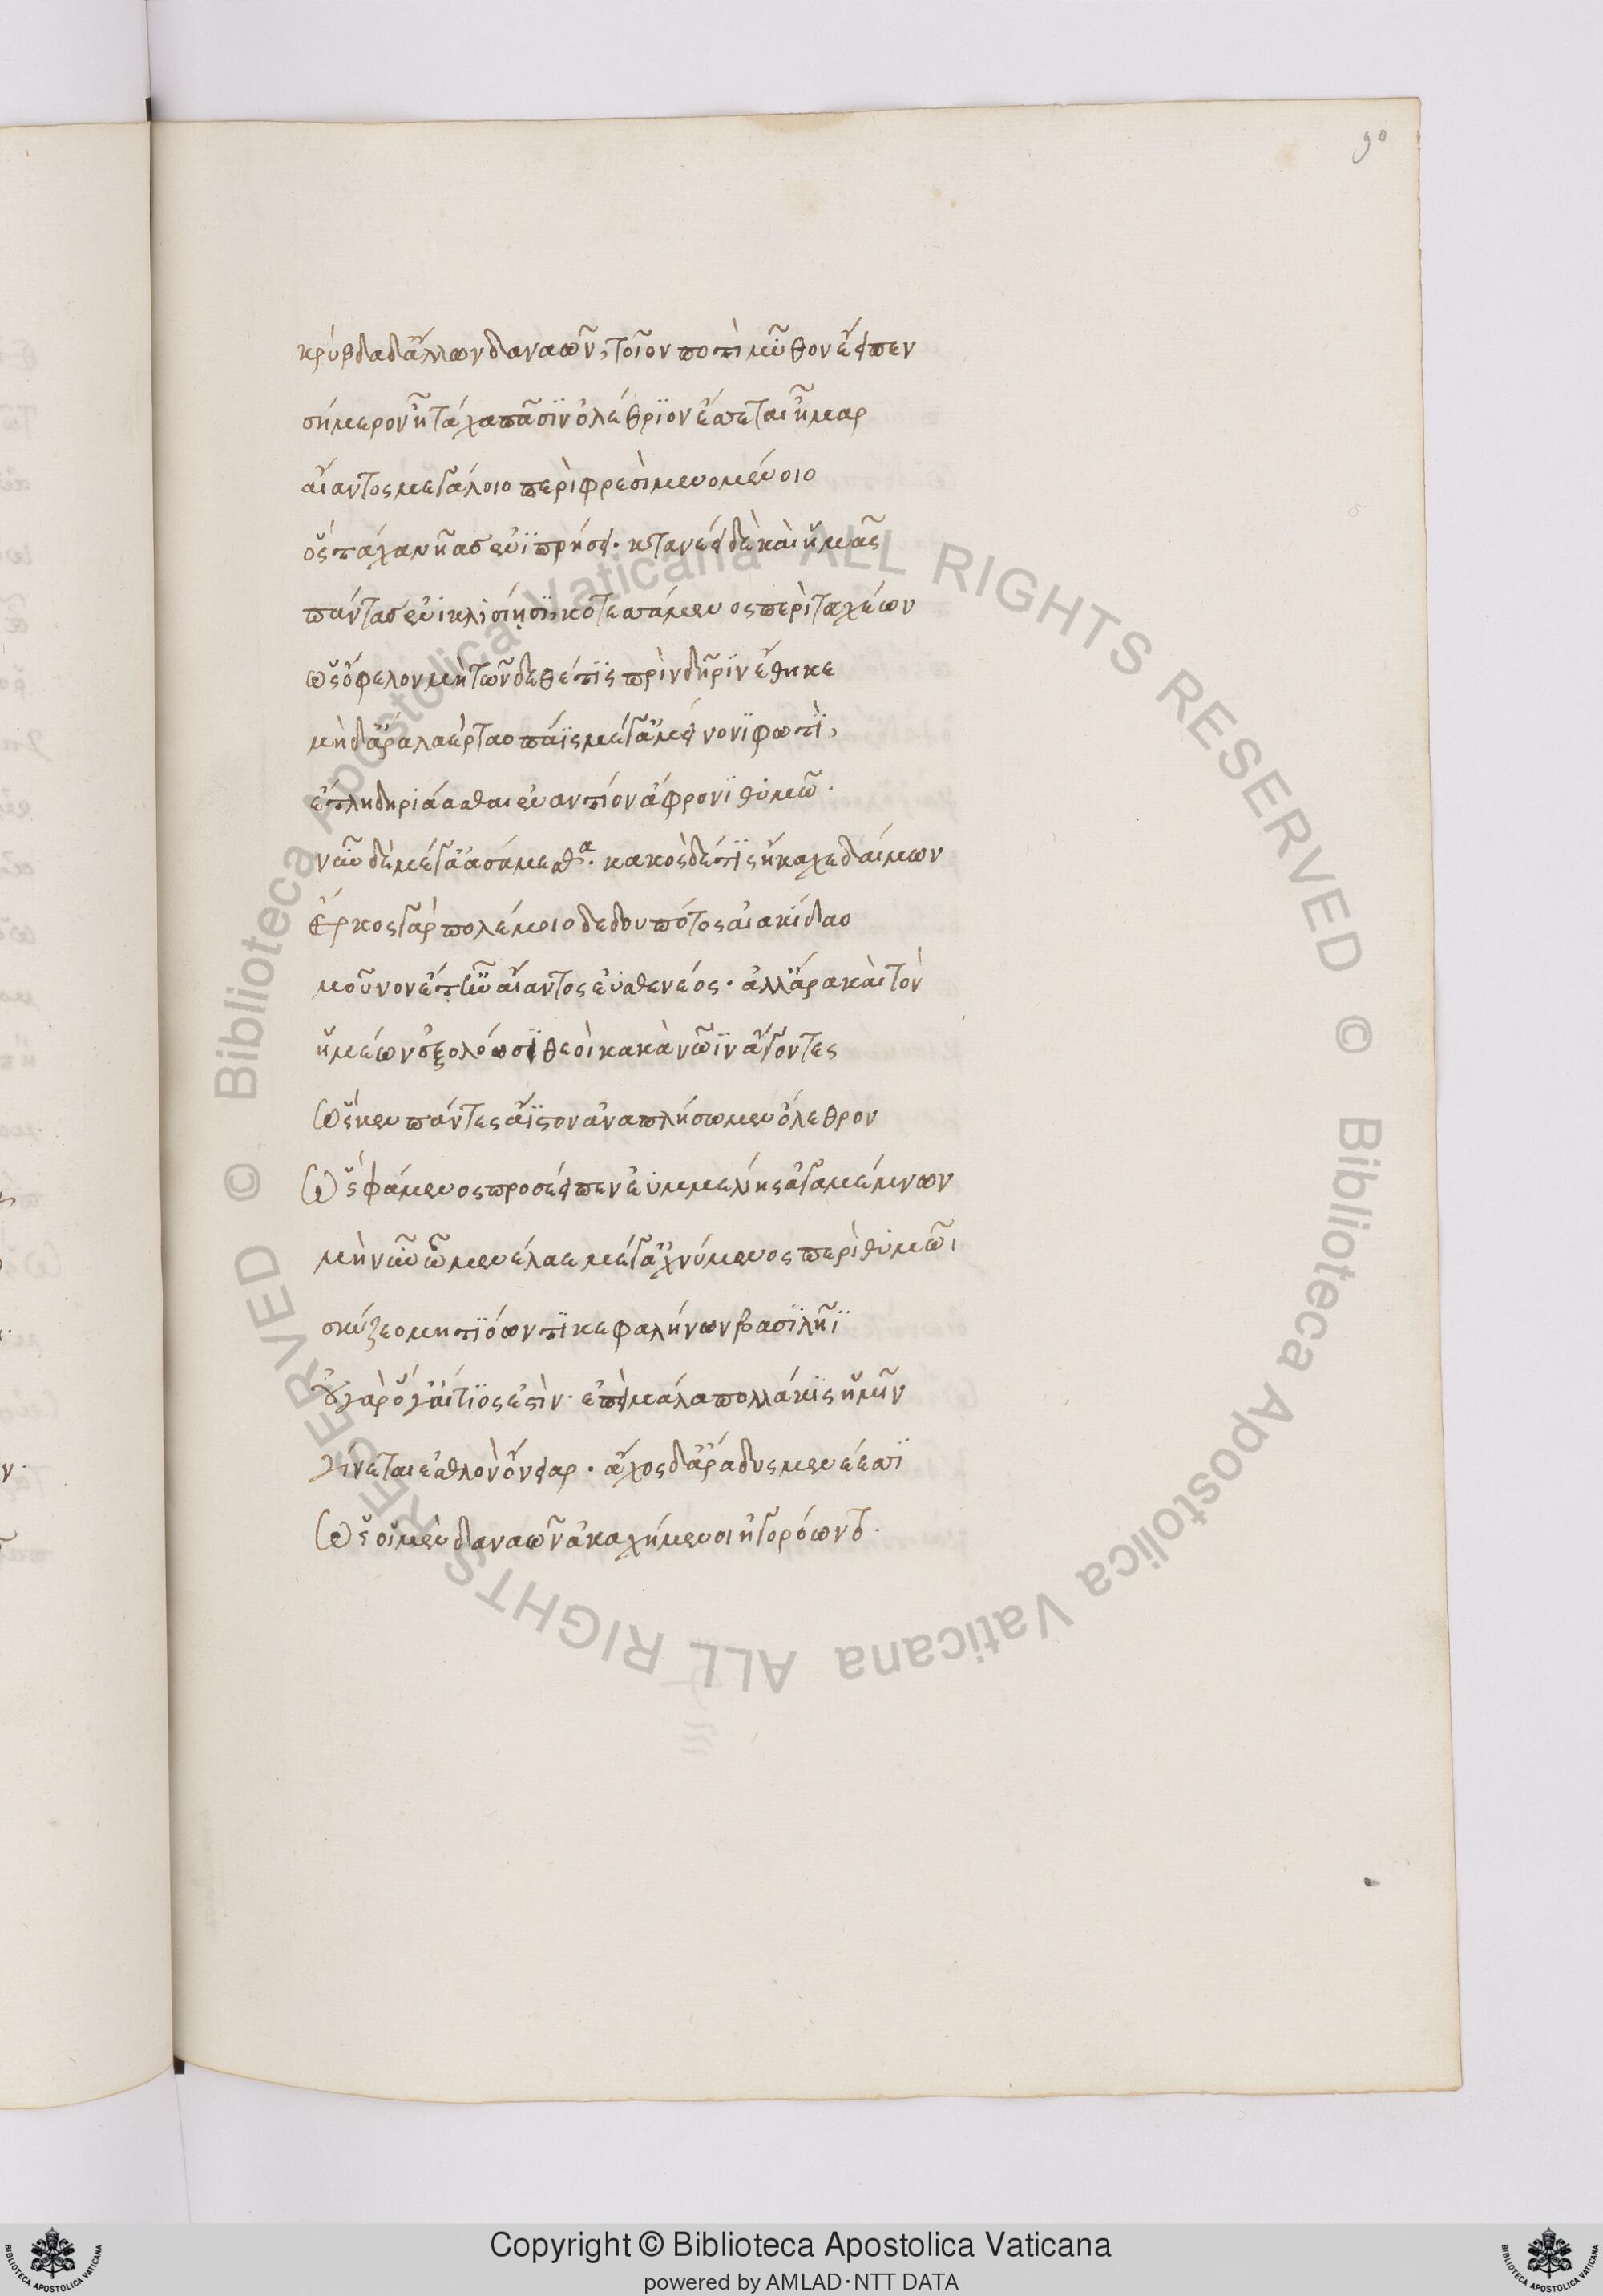 90
κρύβδα δ' ἄλλων δαναῶν, τοῖον ποτὶ μῦθον ἔειπεν
σήμερον ἦ τάχα πᾶσιν ὀλέθριον ἔσπεται ἦμαρ
αἴαντος μεγάλοιο περὶ φρεσὶ μενομένοιο
ὅς τάχα νῆας ἐνιπρήσει. κτανέει δὲ καὶ ἡμᾶς
πάντας ἐνὶ κλισίῃσι, κοτεσσάμενος περὶ τευχέων
ὡς ὄφελον μὴ τῶνδε θέτις πρὶν δῆριν ἔθηκε
μὴ δ' ἄρα λαέρταο πάϊς μέγ' ἀμείνονι φωτὶ,
ἔτλη δηριάασθαι ἐναντίον ἄφρονι θυμῶ.
νῦν δὲ μέγ' ἀασάμεσθα. κακὸς δέ τις ἤκαχε δαίμων
ἕρκος γὰρ πολέμοιο δεδουπότος αἰακίδαο
μοῦνον ἔην αἴαντος ἐϋσθενέος. ἀλλ' ἄρα καὶ τὸν
ἡμέων ἐξολόωσι θεοὶ κακὰ νῶϊν ἄγοντες
ὥς κεν πάντες ἄϊστον ἀναπλήσωμεν ὄλεθρον
ὣς φάμενος προσέειπεν ἐϋμμελίης ἀγαμέμνων
μὴ νῦν ὦ μενέλαε μέγ' ἀχνύμενος περὶ θυμῶι
σκύζεο μητιόωντι κεφαλήνων βασιλῆϊ
οὐ γὰρ ὅγ' αἴτιός ἐστιν. ἐπεὶ μάλα πολλάκις ἡμῖν
γίνεται ἐσθλὸν ὄνειαρ. ἄχος δ' ἄρα δυσμενέεσσι
ὣς οἱ μὲν δαναῶν ἀκαχήμενοι ἠγορόωντο.
Copyright © Biblioteca Apostolica Vaticana
powered by AMLAD·NTT DATA